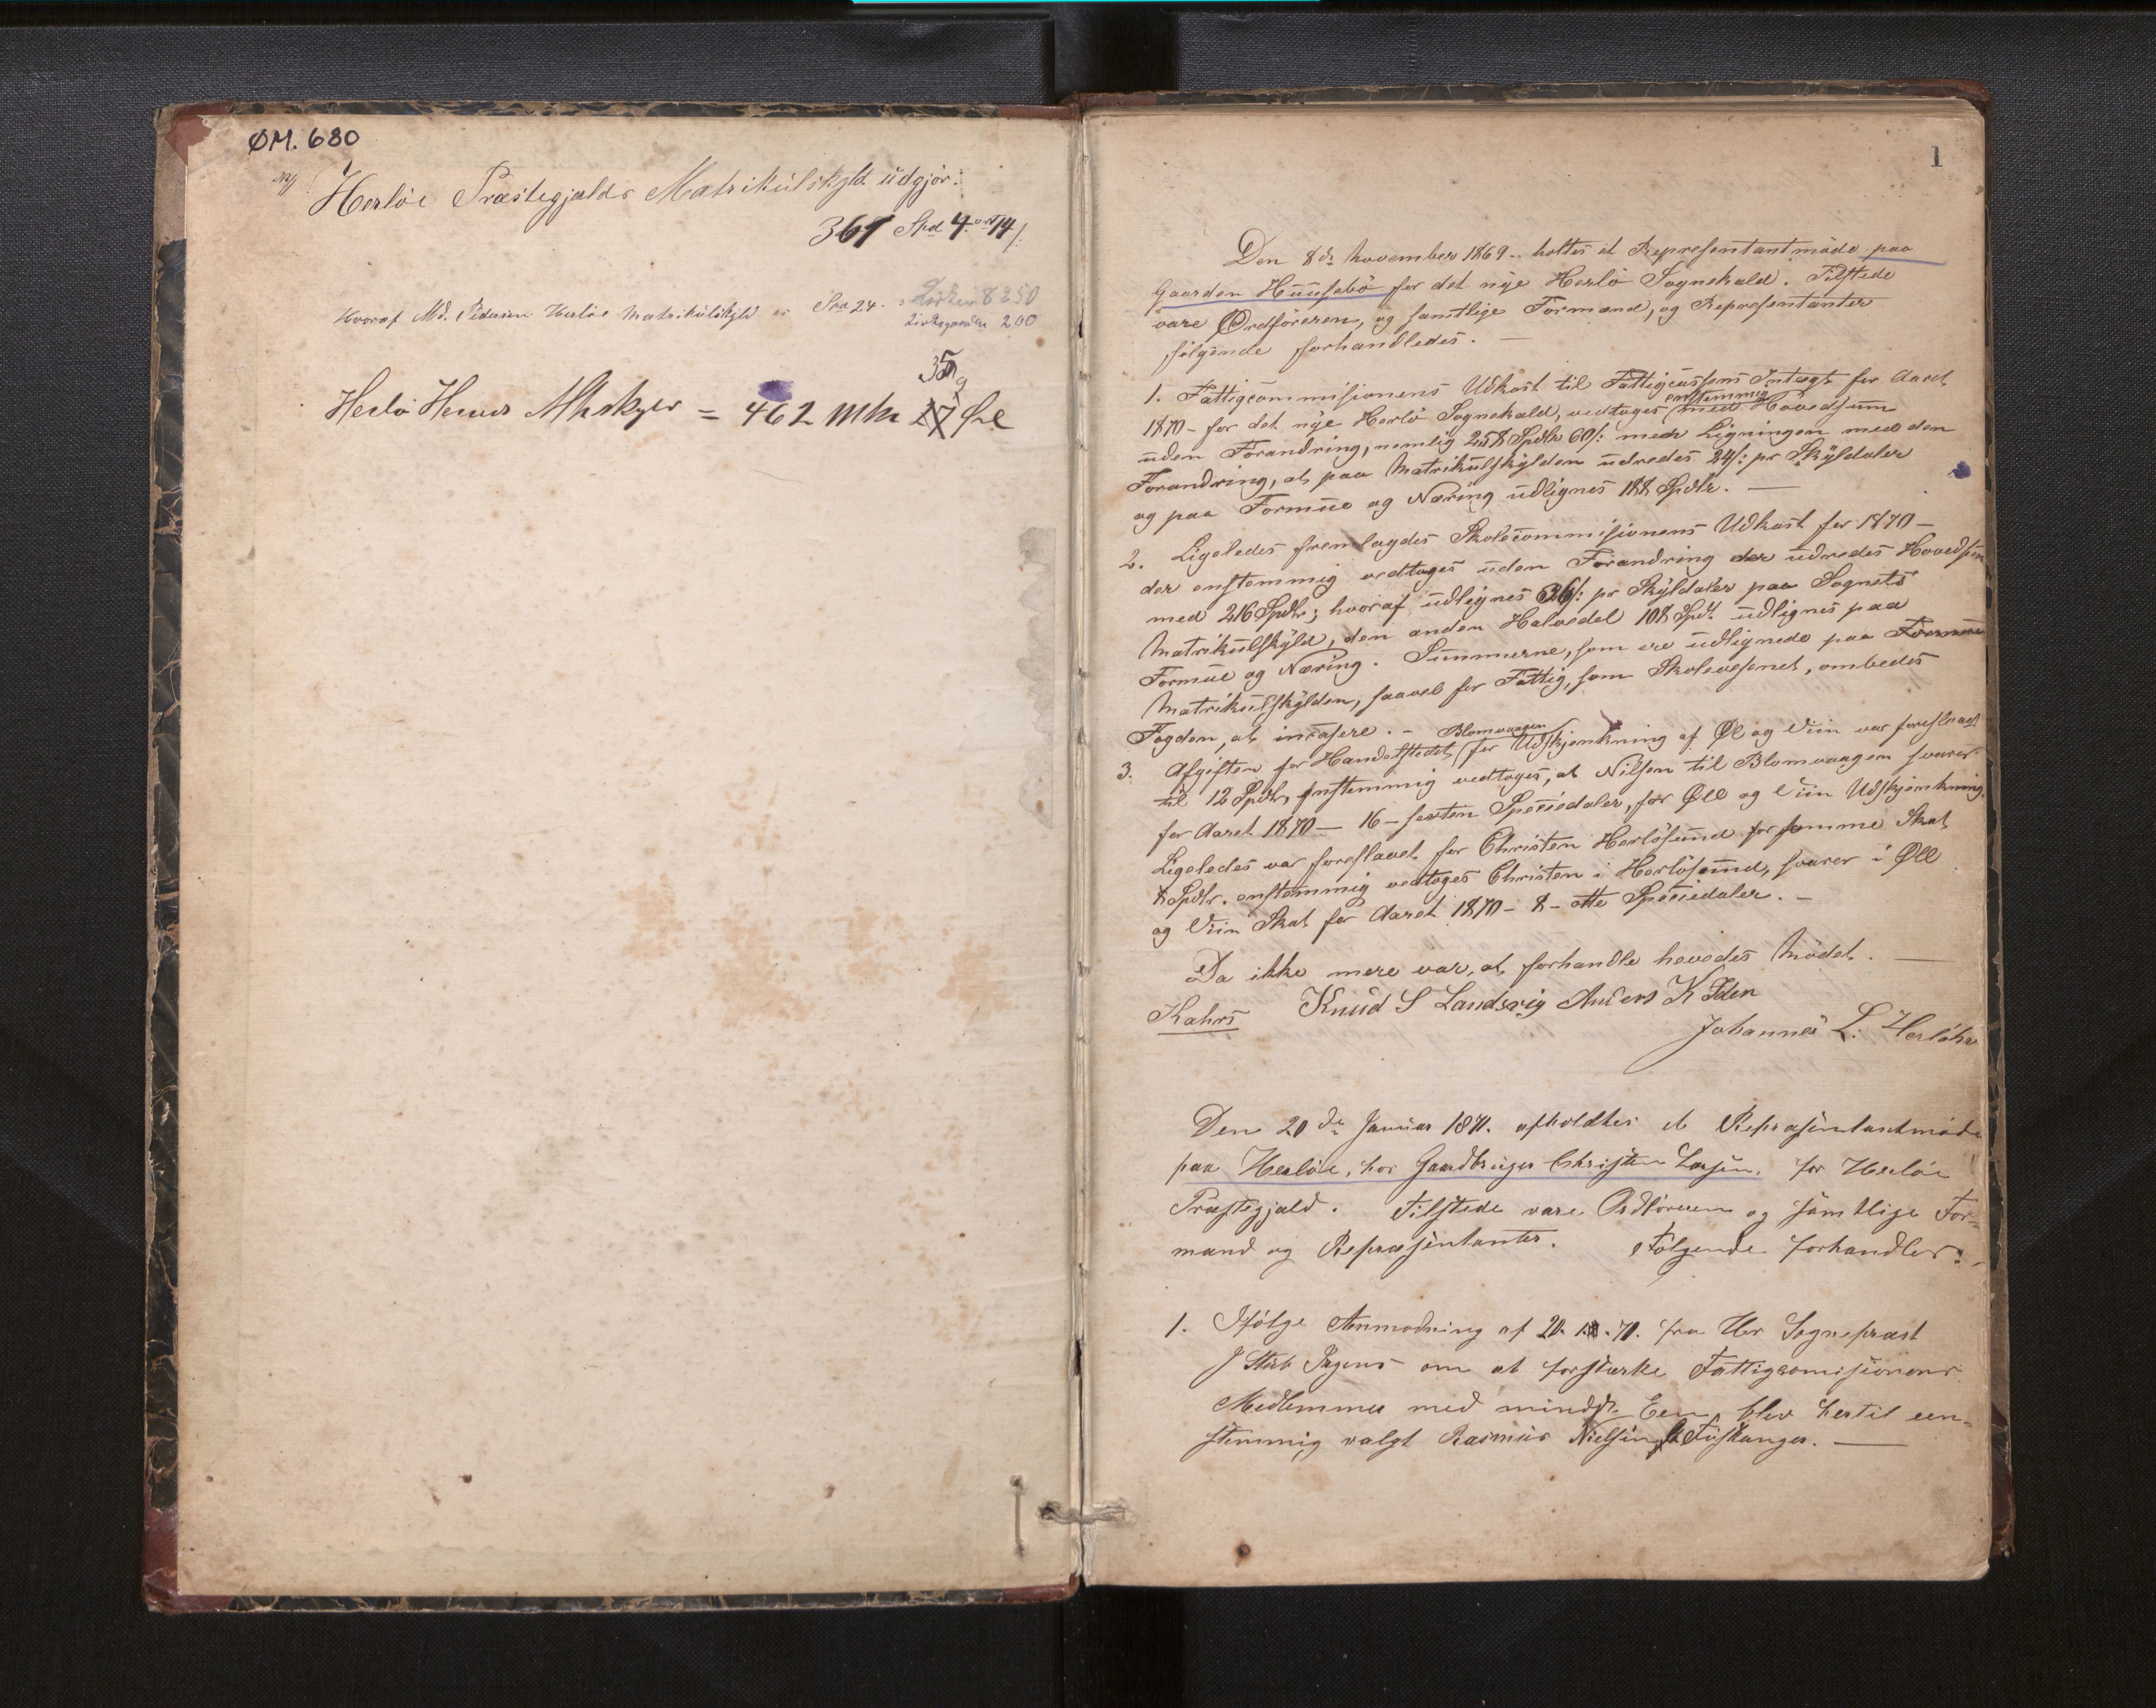 ØM. 680
Herlöe Præstegjælds Matrikülskyld üdgjör:
361 Spd 4 ort 14 /:
Hvoraf Md. Pedersen Herlöe Matrikülskyld er Spd 24.
Kirken 8 250
Kirkegaarden 200
35
Herlö Herreds Mtrskyld = 462 Mkr 27 Øre
1
Den 8de November 1869 - holtes et Repræsentantmöde paa
Gaarden Hüüsebö for det nye Herlö Sognekald. Tilstede
vare Ordföreren, og samtlige Formænd, og Representanter
følgende forhandledes. —
1. Fattigcommisionens Udkast til Fattigcassens Indtægt for Aaret
1870 - for det nye Herlö Sognekald, vedtoges enstemmig med Hovedsüm
uden Forandring, nemlig 258 Spdlr 60 /: med Ligningen med den
Forandring, at paa Matrikülskylden üdredes 24 /: pr Skyldaler
og paa Formüe og Næring üdlignes 188 Spdlr. —
2. Ligeledes fremlagdes Skolecommisionens Udkast for 1870 —
der enstemmig vedtoges üden Forandring der üdredes Hovedsüm
med 216 Spdlr; hvoraf üdlignes 36 /: pr Skyldaler paa Sognets
Matrikülskyld, den anden Halvdel 108 Spdl. üdlignes paa
Formüe og Næring. Sümmerne, som ere üdlignede paa Formüe
Matrikülskylden, saavel for Fattig, som Skolevesenet, ombedes
Fogden, at incasere. -
3. Afgiften for Handelstedet Blomvaagen for Udskjenkning af Øl og Viin var foreslaaet
til 12 Spdlr, enstemmig vedtoges, at Nilsen til Blomvaagen svarer
for Aaret 1870 — 16 - sexten Speciedaler, for Øll og Viin Udskjenkning.
Ligeledes var foreslaaet for Christen Herlösund for samme Skat
8 Spdlr. enstemmig vedtoges Christen i Herlösund, svarer i Øll
og Viin Skat for Aaret 1870 - 8 - otte Speciedaler. -
Da ikke mere var, at forhandle hevedes Mödet. —
Kahrs Knüd S Landsvig Anders K Iden
Johannes L: Herlöhr
Den 20de Janüar 1871. afholdtes et Repræsentantmöde
paa Herlöe, hos Gaardbrüger Christen Larsen. for Herlöe
Præstegjæld. Tilstede vare Ordföreren og samtlige For-
mænd og Repræsentanter. Fölgende forhandles:,
1. Ifölge Anmodning af 20. 70. fra Hr Sognepræst
om at forstærke Fattigcomisionens
Medlemmer med mindst Een, blev hertil een-
stemmig valgt Rasmüs Nielsen Füskanger. —